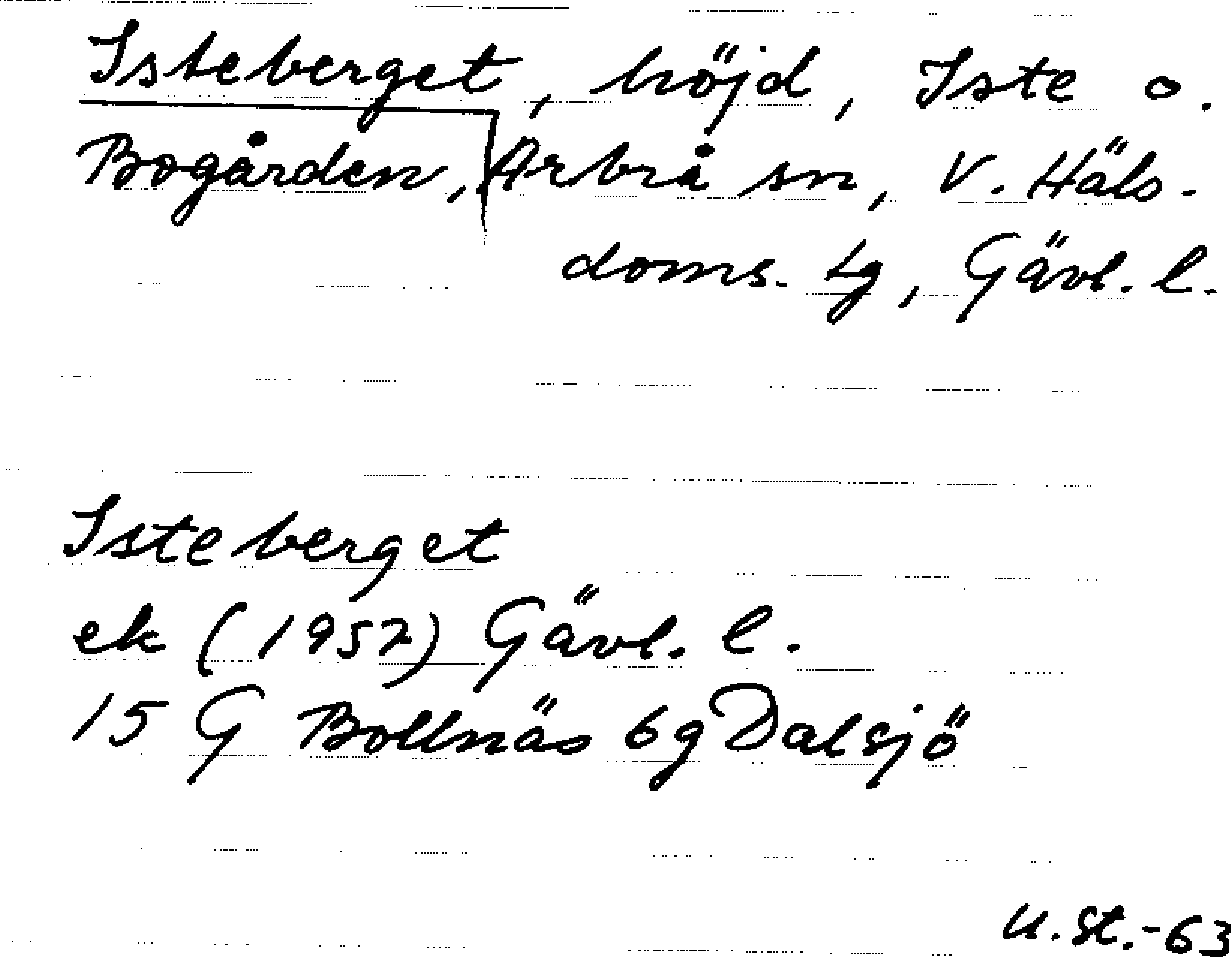 Isteberget, höjd, Iste o.
Bogården, Arbrå sn, V. Häls.
doms. tg, Gävl. l.
Isteberget
ek (1957) Gävl. l.
15 G Bollnäs 6g Dalsjö
U.St.-63